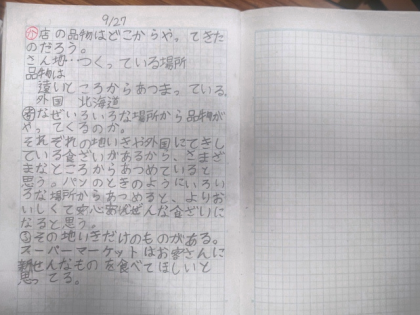 9/27
店の品物はどこからやってきた
のだろう。
さん地・つくっている場所
品物は
遠いところからあつまっている。
外国 北海道
なぜいろいろな場所から品物が
やってくるのか。
それぞれの地いきや外国にてきし
ている食ざいがあるから、さまざ
まなところからあつめていると
思う。パンのときのようにいろい
ろな場所からあつめると、よりお
いしくて安心安ぜんな食ざいに
なると思う。
その地いきだけのものがある。
スーパーマーケットはお客さんに
新せんなものを食べてほしいと
思ってる。